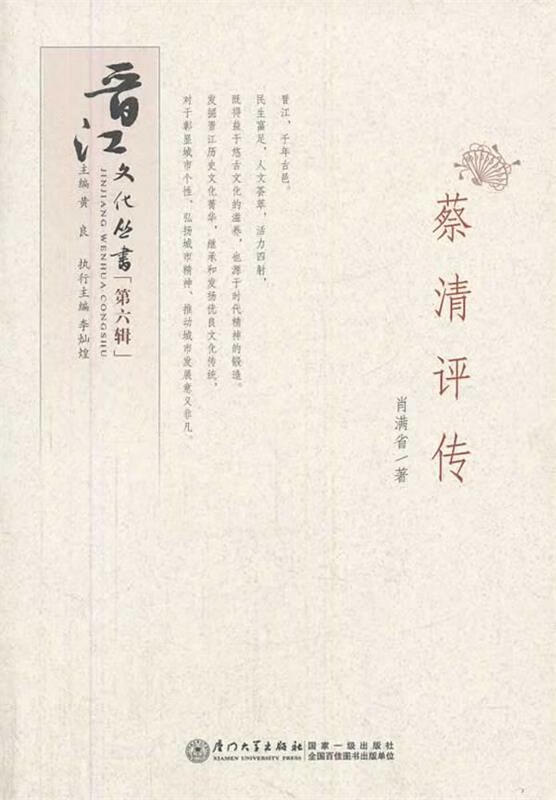 蔡清评传
肖满省／著
晋江，千年古邑。
民生富足，人文荟萃，活力四射，
既得益于悠古文化的滋养，也源于时代精神的锻造。
发掘晋江历史文化菁华，继承和发扬优良文化传统，
对于彰显城市个性、弘扬城市精神、推动城市发展意义非凡。
晋江
文化丛书「第六辑」
JINJIANG WENHUA CONGSHU
主编 黄 良 执行主编 李灿煌
厦门大学出版社
XIAMEN UNIVERSITY PRESS
国家一级出版社
全国百佳图书出版单位